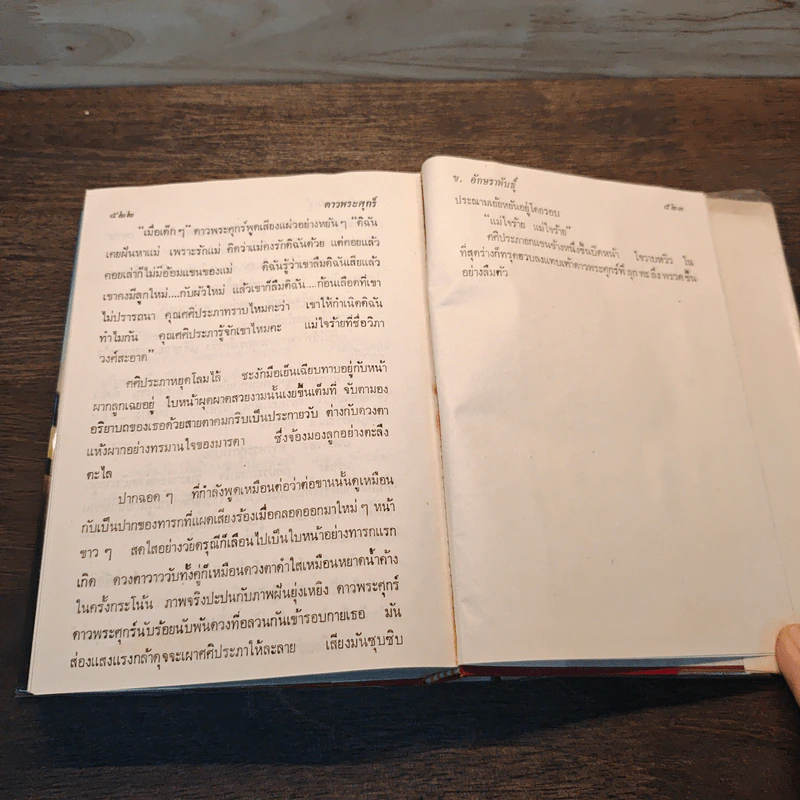 ๕๒๒
ดาวพระศุกร์
"เมื่อเด็กๆ" ดาวพระศุกร์พูดเสียงแผ่วอย่างหยันๆ "ดิฉัน
เคยฝันหาแม่ เพราะรักแม่ คิดว่าแม่คงรักดิฉันด้วย แต่คอยแล้ว
คอยเล่าก็ไม่มีอ้อมแขนของแม่ ดิฉันรู้ว่าเขาลืมดิฉันเสียแล้ว
เขาคงมีลูกใหม่....กับผัวใหม่ แล้วเขาก็ลืมดิฉัน....ก้อนเลือดที่เขา
ไม่ปรารถนา คุณศศิประภาทราบไหมคะว่า เขาให้กำเนิดดิฉัน
ทำไมกัน คุณศศิประภารู้จักเขาไหมคะ แม่ใจร้ายที่ชื่อวิภา
วงศ์สะอาด"
ศศิประภาหยุดโลมไล้ ชะงักมือเย็นเฉียบทาบอยู่กับหน้า
ผากลูกเฉยอยู่ ใบหน้าผุดผาดสวยงามนั้นเงยขึ้นเต็มที่ จับตามอง
อริยาบถของเธอด้วยสายตาคมกริบเป็นประกายวับ ต่างกับดวงตา
แห้งผากอย่างทรมานใจของมารดา ซึ่งจ้องมองลูกอย่างตะลึง
ตะไล
ปากฉอดๆ ที่กำลังพูดเหมือนต่อว่าต่อขานนั้นดูเหมือน
กับเป็นปากของทารกที่แผดเสียงร้องเมื่อคลอดออกมาใหม่ๆ หน้า
ขาวๆ สดใสอย่างวัยดรุณีก็เลือนไปเป็นใบหน้าอย่างทารกแรก
เกิด ดวงตาวาววับทั้งคู่ก็เหมือนดวงตาดำใสเหมือนหยาดน้ำค้าง
ในครั้งกระโน้น ภาพจริงปะปนกับภาพฝันยุ่งเหยิง ดาวพระศุกร์
ดาวพระศุกร์นับร้อยนับพันดวงที่อลวนกันเข้ารอบกายเธอ มัน
ส่องแสงแรงกล้าดุจจะเผาศศิประภาให้ละลาย เสียงมันซุบซิบ
ข. อักษราพันธุ์
๕๒๓
ประณามเย้ยหยันอยู่โดยรอบ
"แม่ใจร้าย แม่ใจร้าย"
ศศิประภายกแขนข้างหนึ่งขึ้นปิดหน้า ใจวาบหวิว ใน
ที่สุดร่างก็ทรุดฮวบลงแทบเท้าดาวพระศุกร์ที่ลุกทะลึ่งพรวดขึ้น
อย่างลืมตัว